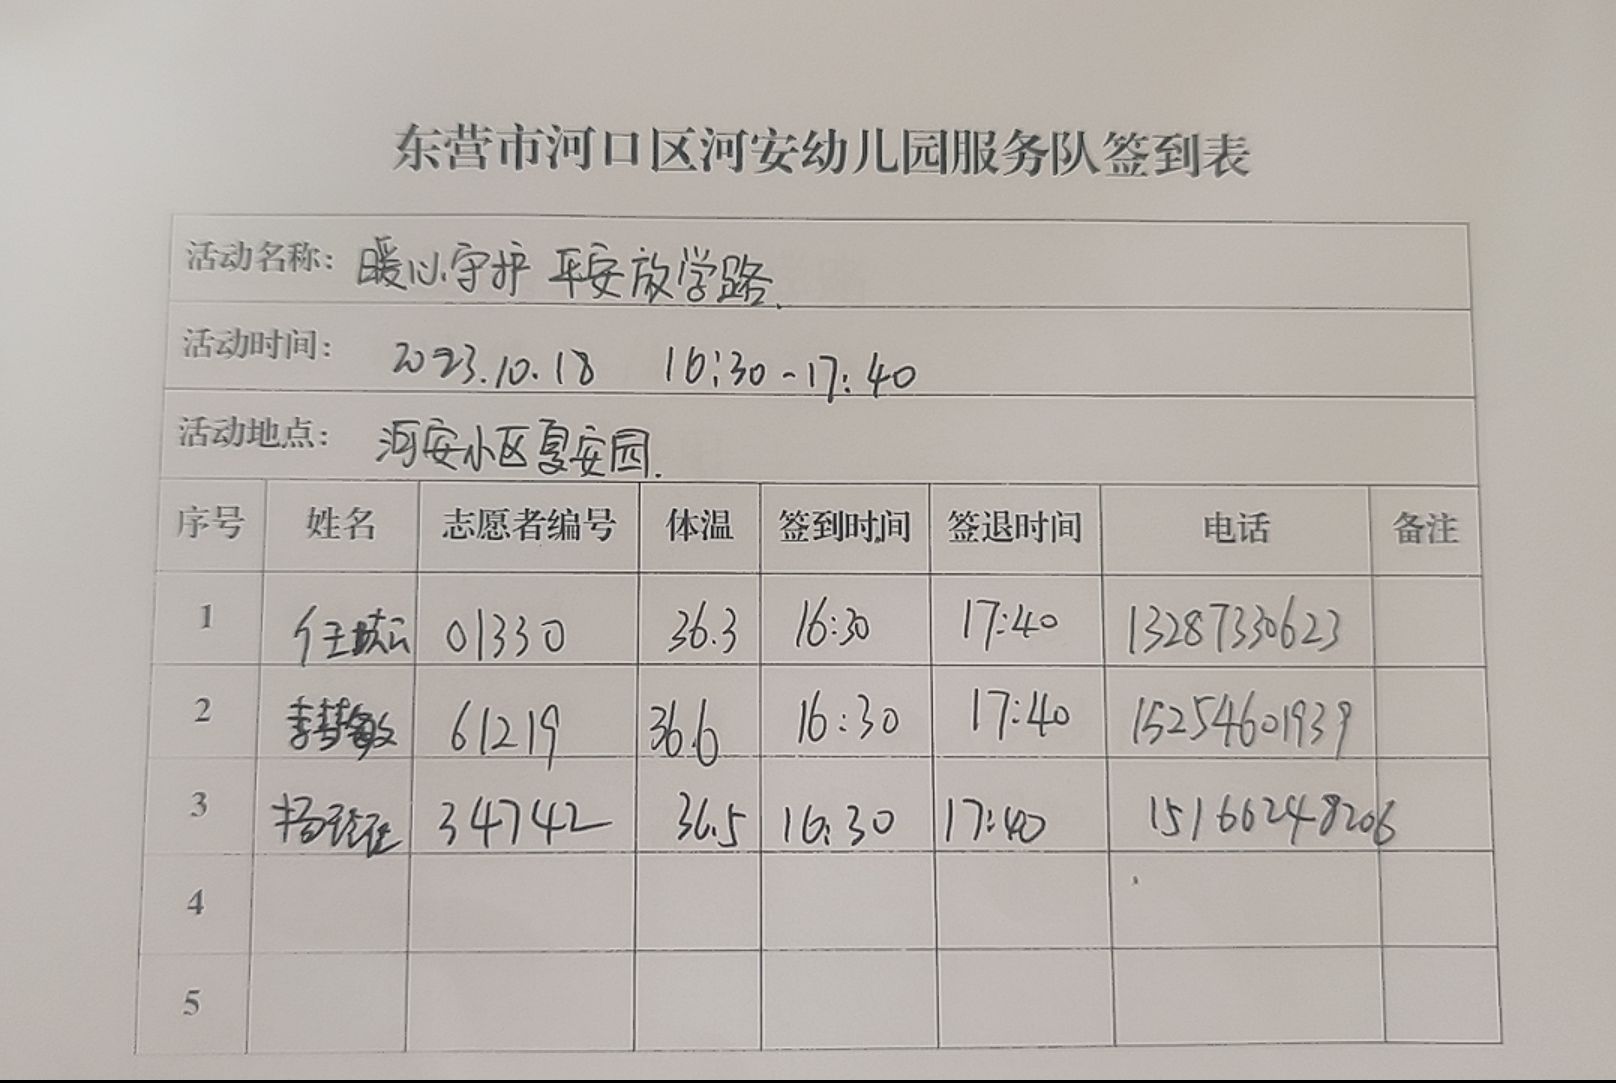 东营市河口区河安幼儿园服务队签到表
活动名称: 暖心守护 平安放学路.
活动时间: 2023.10.18 16:30-17:40
活动地点: 河安小区夏安园.
序号 姓名 志愿者编号 体温 签到时间 签退时间 电话 备注
1 01330 36.3 16:30 17:40 13287330623
2 李梦敏 61219 36.6 16:30 17:40 15254601939
3 34742 36.5 16:30 17:40 15166248206
4
5